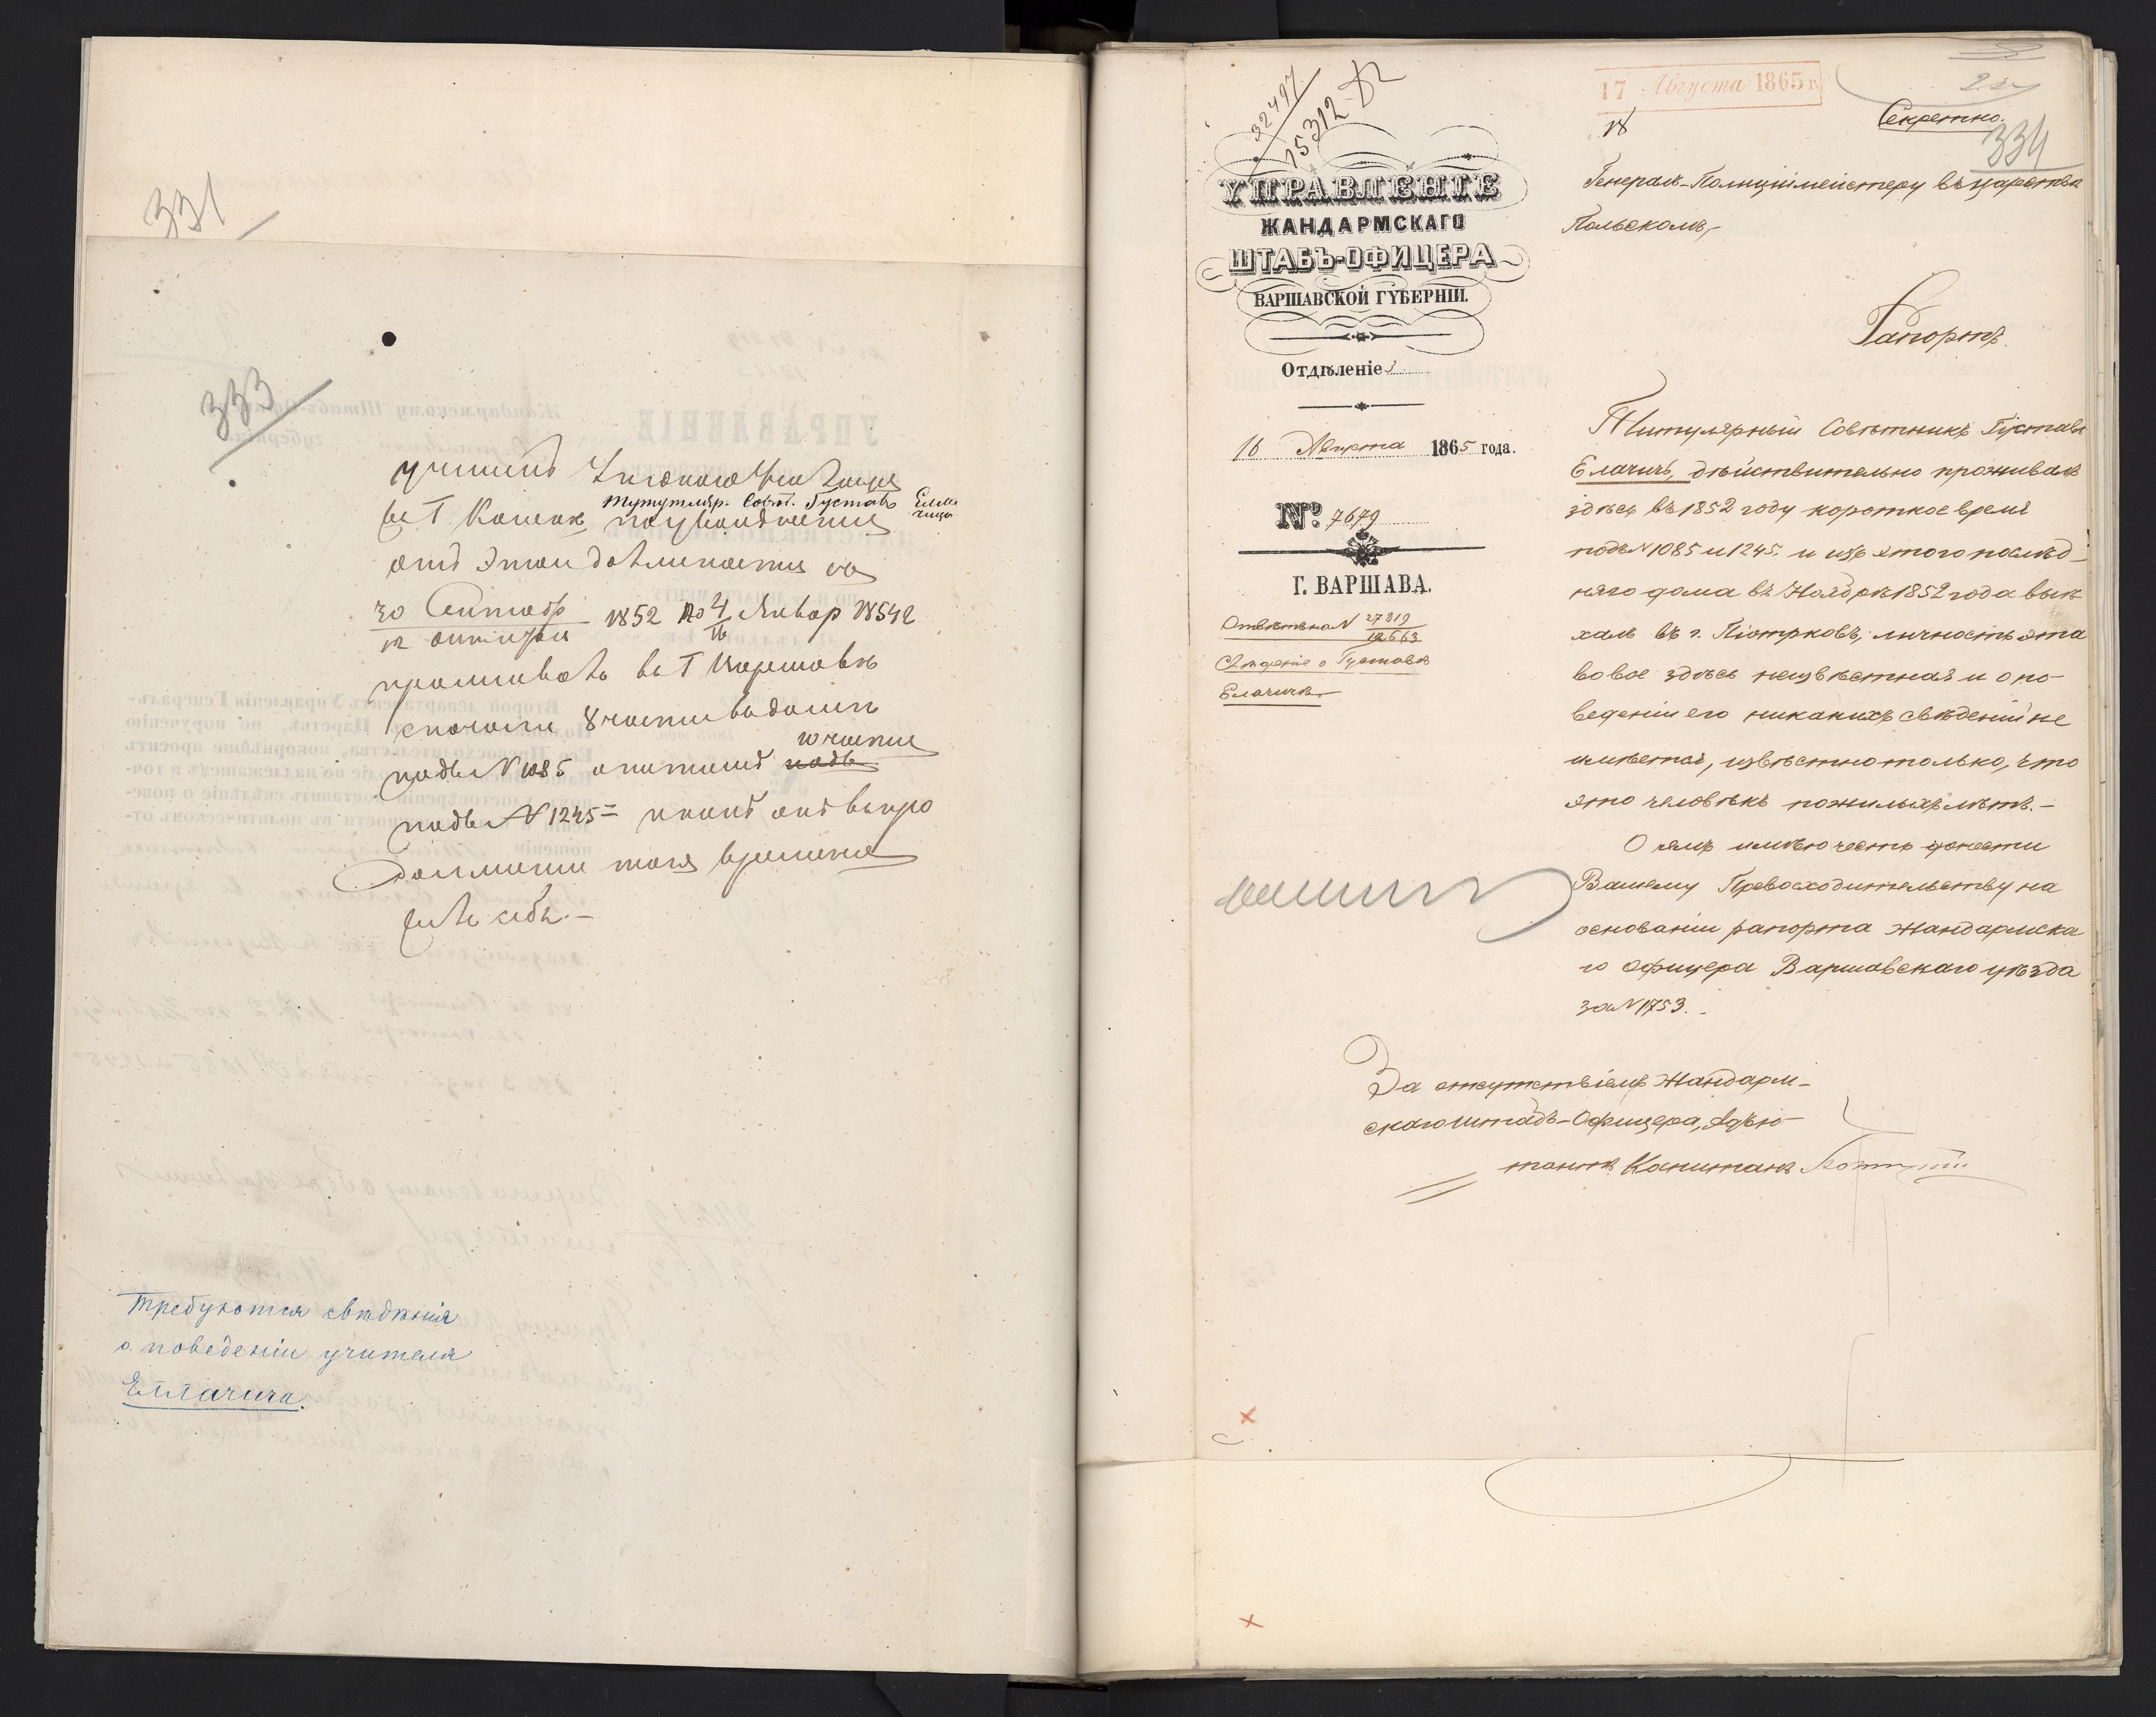 331
333
учитель
въ Г.
Титуляр. Совѣт. Густавъ Елла
чичъ
отъ этой должности съ
30 Сентябр 1852 по 4 Январ 1854
12
16
проживалъ въ Г Варшавѣ
сначала 8 части въ домѣ
10 части
подъ N 1085 а потомъ подъ
подъ N 1245
времени
себѣ.-
Требуются свѣдѣнія
о поведеніи учителя
Еллачича.
32497
15312
17 Августа 1865 г.
18
Секретно.
334
УПРАВЛЕНІЕ
ЖАНДАРМСКАГО
ШТАБЪ-ОФИЦЕРА
ВАРШАВСКОЙ ГУБЕРНІИ.
Отдѣленіе 3
16 Августа 1865 года.
№ 7679
Г. ВАРШАВА.
Отвѣтъ на N 27819
12663
Свѣденіе о Густавѣ
Елачичѣ
Генералъ-Полиціймейстеру въ царствѣ
Польскомъ,-
Рапортъ.
Титулярный Совѣтникъ Густавъ
Елачичъ, дѣйствительно проживалъ
здѣсь въ 1852 году короткое время
подъ N 1085 и 1245. и изъ этого послѣд-
няго дома въ Ноябрѣ 1852 года выѣ
халъ въ г. Піотрковъ, личность эта
вовсе здѣсь неизвѣстная и о по-
веденіи его никакихъ свѣденій не
имѣется, извѣстно только, что
это человѣкъ пожилыхъ лѣтъ.-
О чемъ имѣю честь донести
Вашему Превосходительству на
основаніи рапорта Жандармска
го Офицера Варшавскаго уѣзда
за N 1753.
За отсутствіемъ Жандарм-
скаго Штабъ-Офицера, Адъю-
тантъ Капитанъ